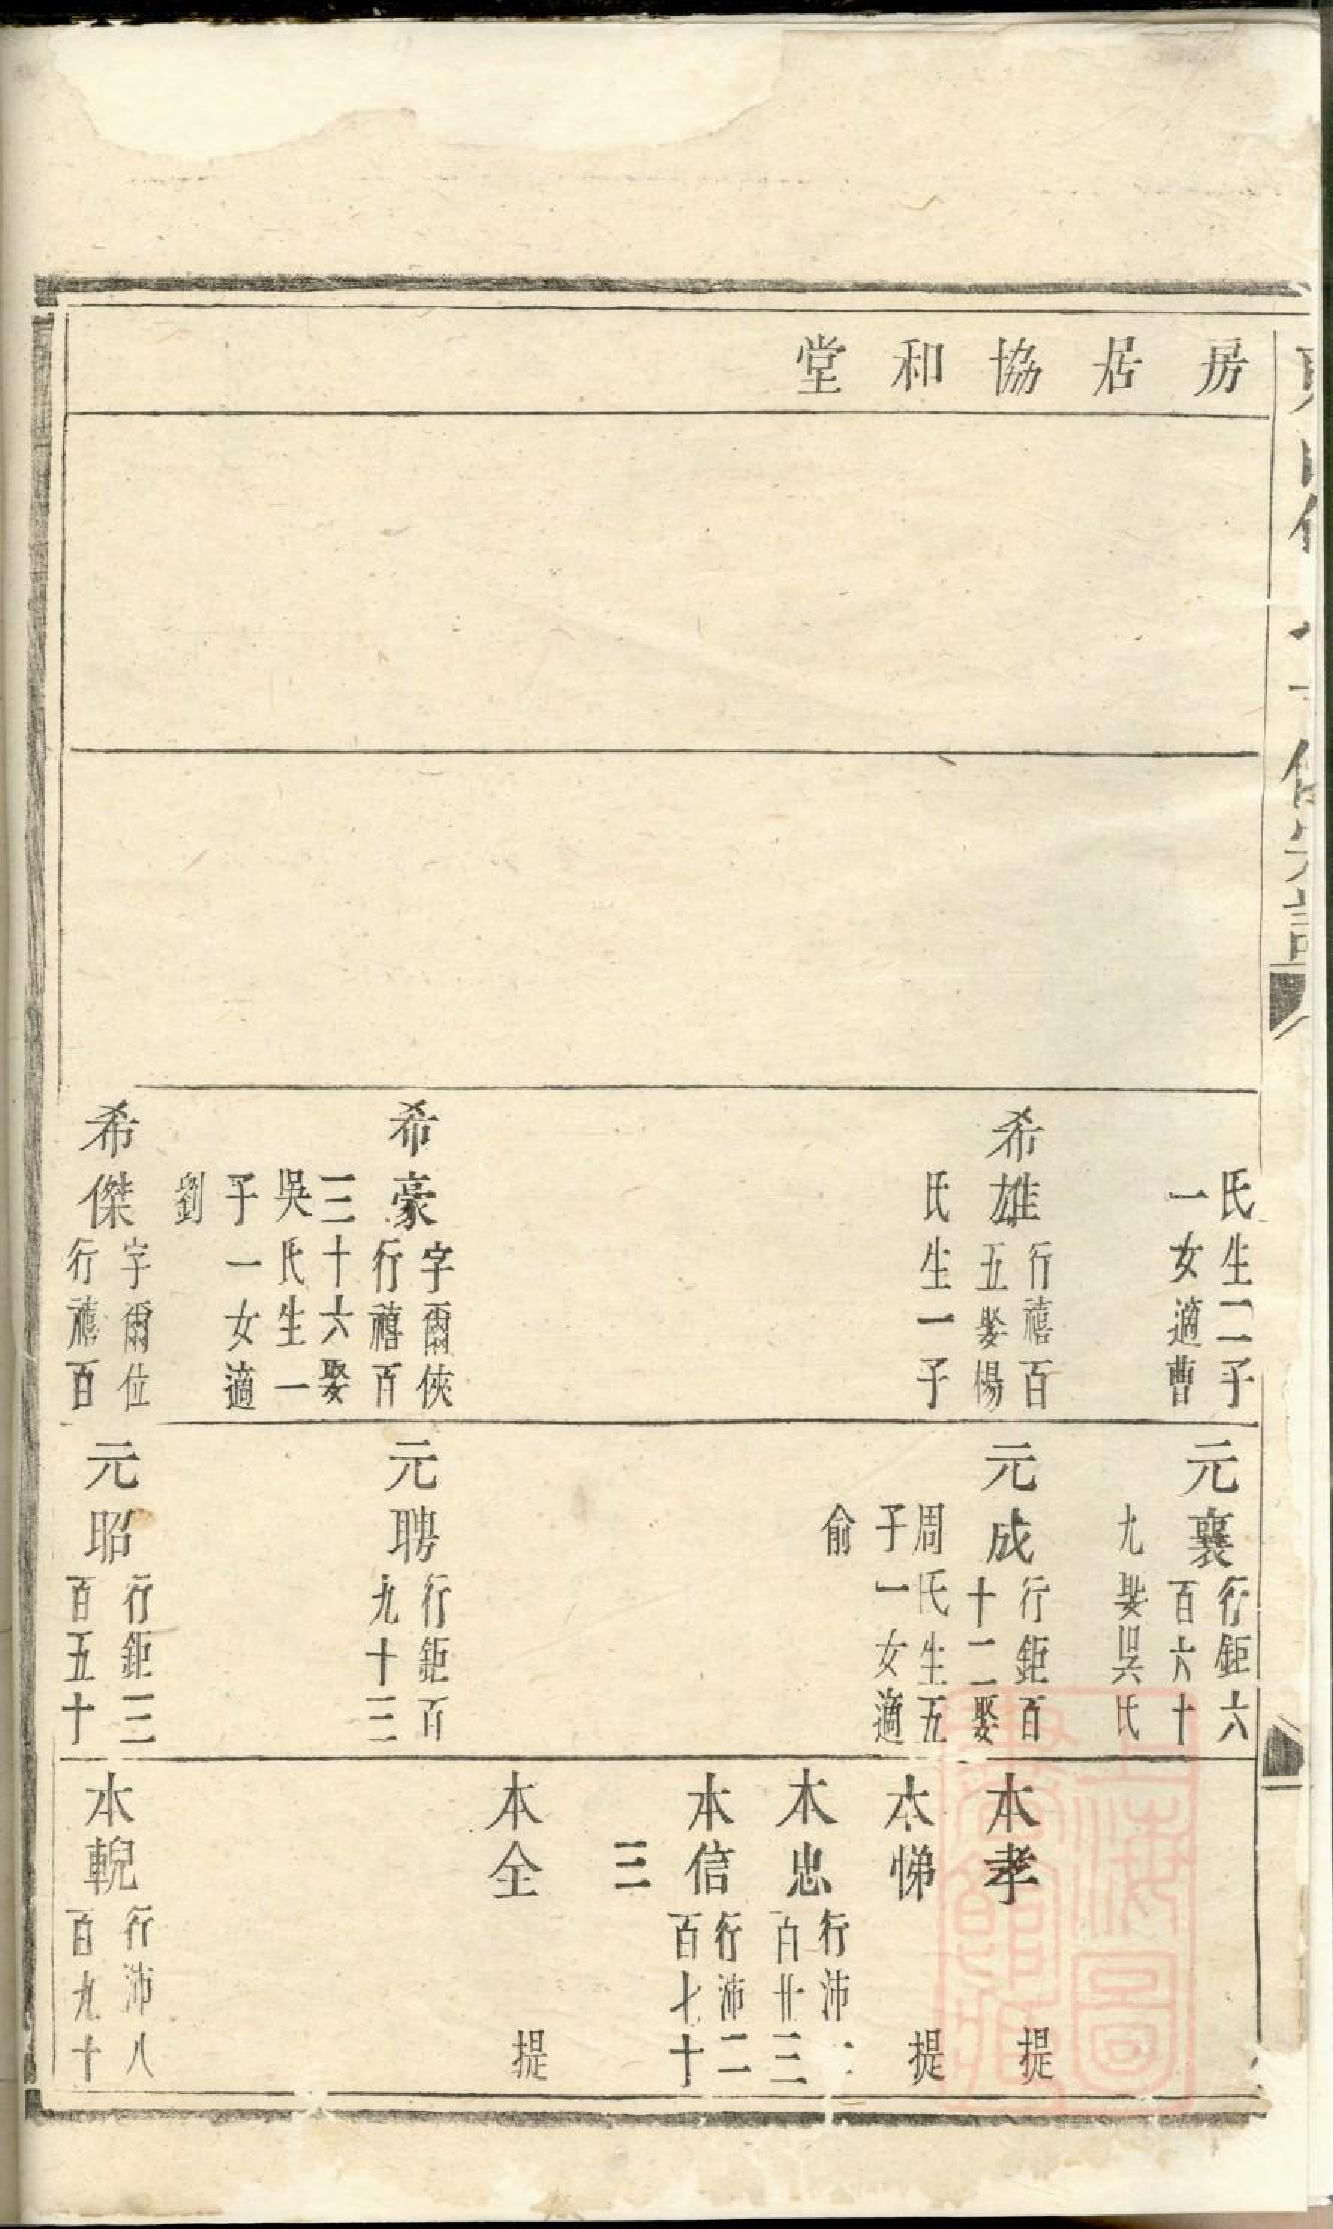 房居協和堂
氏生二子
一女適曹
希雄
行禧百
五娶楊
氏生一子
希豪
字爾俠
行禧百
三十六娶
吳氏生一
子一女適
劉
希傑
字爾位
行禧百
元襄
行鉅六
百六十
九娶吳氏
元成
行鉅百
十二娶
周氏生五
子一女適
俞
元聘
行鉅百
九十三
元昭
行鉅三
百五十
本孝 提
本悌 提
本忠
行沛二
百廿三
本信
行沛二
百七十
三
本全 提
本輗
行沛八
百九十
上海圖
書館藏